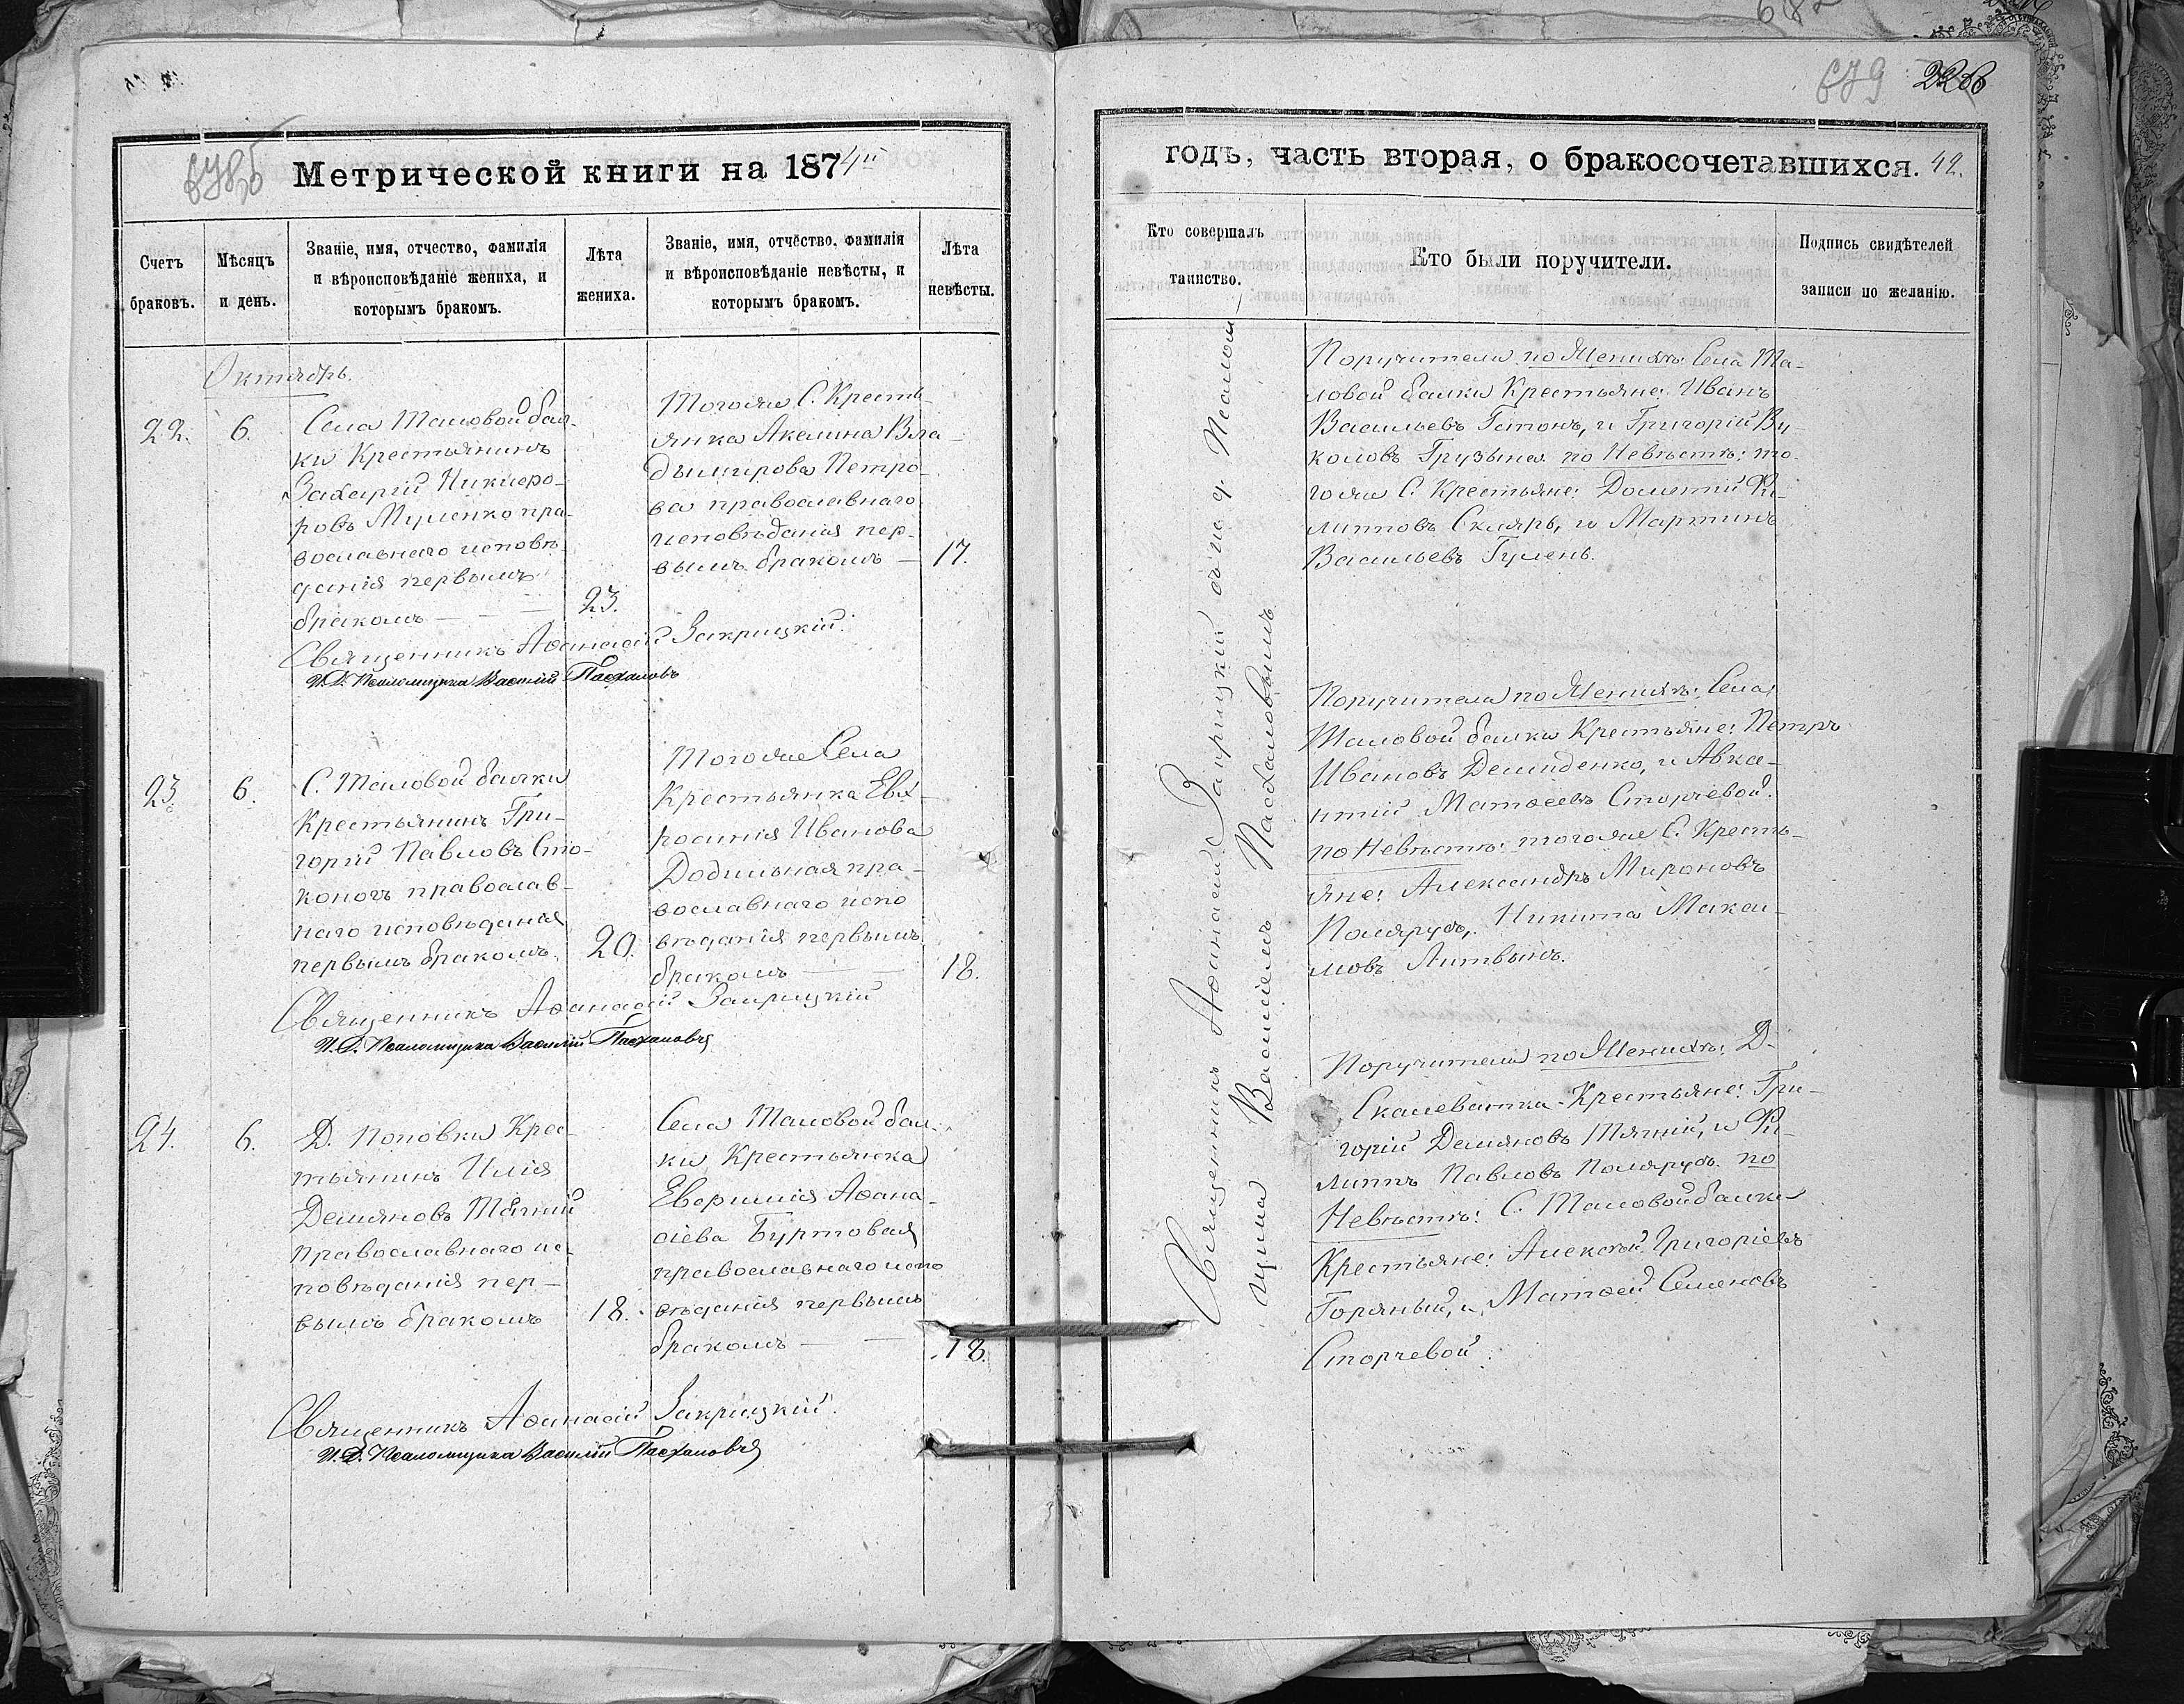 Метрической книги на 1874й
Счетъ браковъ.
Мѣсяцъ и день.
Званіе, имя, отчество, фамилія
и вѣроисповѣданіе жениха, и
которымъ бракомъ.
Лѣта жениха.
Званіе, имя, отчество, фамилія
и вѣроисповѣданіе невѣсты, и
которымъ бракомъ.
Лѣта невѣсты.
Октябрь.
22.
6.
Села Маловой бал-
ки Крестьянинъ
Захарій Никифо-
ровъ Муленко пра-
вославнаго исповѣ-
данія первымъ
бракомъ —
23.
Тогоже С. Кресть-
янка Акелина Вла-
дымирова Петро-
ва православнаго
исповѣданія пер-
вымъ бракомъ —
17.
Священникъ Аѳанасій Закрицкій.
И. Д. Псаломщика Василій Пасхаловъ
23.
6.
С. Маловой балки
Крестьянинъ Гри-
горій Павловъ Сто-
коногъ православ-
наго исповѣданія
первымъ бракомъ.
20.
Тогоже Села
Крестьянка Евх-
росинія Иванова
Додильная пра-
вославнаго испо
вѣданія первымъ
бракомъ —
18.
Священникъ Аѳанасій Закрицкій
И. Д. Псаломщика Василій Пасхаловъ
24.
6.
Д. Поповки Крес-
тьянинъ Илія
Демяновъ Тягній
православнаго ис-
повѣданія пер-
вымъ бракомъ
18.
Села Маловой бал-
ки Крестьянка
Евфимія Аѳана-
сіева Буртовая
православнаго испо
вѣданія первымъ
бракомъ —
18.
Священникъ Аѳанасій Закрицкій.
И. Д. Псаломщика Василій Пасхаловъ
679
годъ, часть вторая, о бракосочетавшихся. 42.
Кто совершалъ таинство.
Кто были поручители.
Подпись свидѣтелей
записи по желанію.
Священникъ Аѳанасій Закрицкій съ и. д. Псалом-
щика Василіемъ Пасхаловымъ
Поручители по Женихѣ: Села Ма-
ловой балки Крестьяне: Иванъ
Васильевъ Гапонъ, и Григорій Ву-
коловъ Грузына. по Невѣстѣ: то-
гоже С. Крестьяне: Дометій Фи-
липповъ Скляръ, и Мартинъ
Васильевъ Гулень.
Поручители по Женихѣ: Села
Маловой балки Крестьяне: Петръ
Ивановъ Демиденко, и Авкс-
нтій Матѳеевъ Сторчевой.
по Невѣстѣ: тогоже С. Кресть-
яне: Александръ Мироновъ
Поляруѣ, Никита Макси-
мовъ Литвынъ.
Поручители по Женихѣ: Д.
Скалеватка Крестьяне: Гри-
горій Демяновъ Тягній, и Фи-
липпъ Павловъ Поляруѣ. по
Невѣстѣ: С. Маловой балки
Крестьяне: Алексѣй Григоріевъ
Горяный, и Матѳей Семеновъ
Сторчевой.